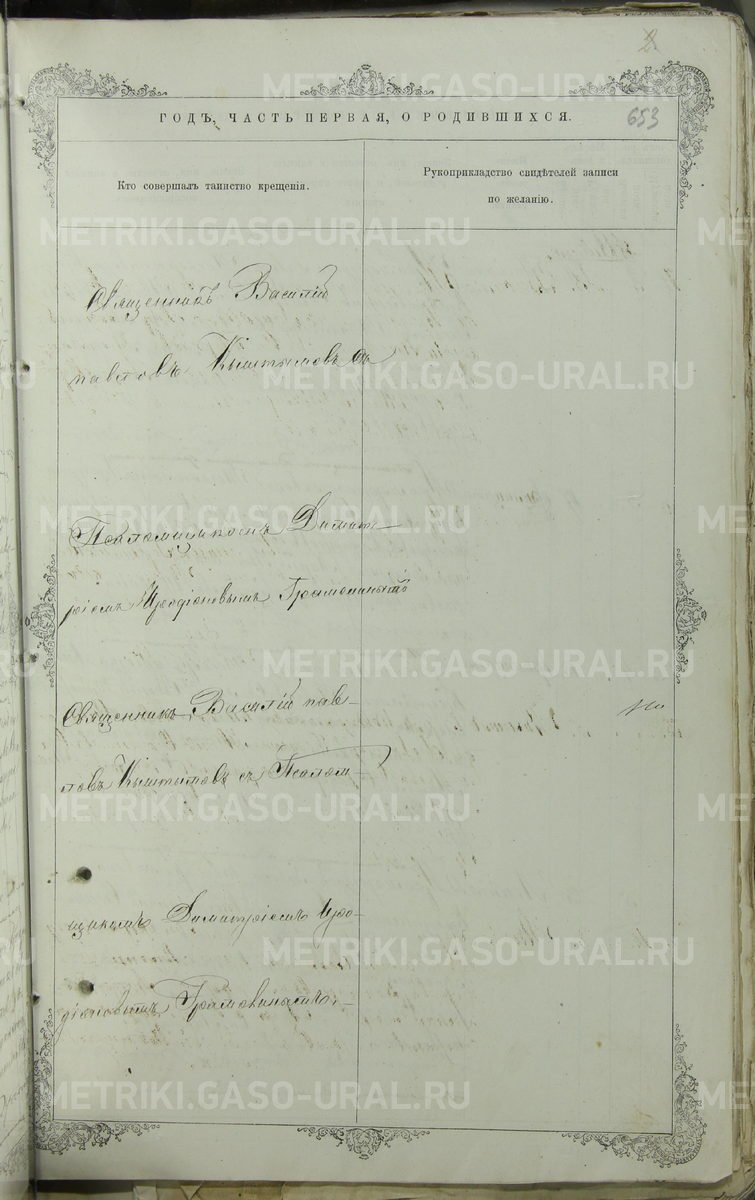 653
ГОДЪ, ЧАСТЬ ПЕРВАЯ, О РОДИВШИХСЯ.
Кто совершалъ таинство крещенія.
Рукоприкладство свидѣтелей записи
по желанію.
Священникъ Василій
Павловъ Кыштымовъ съ
Псаломщикомъ Димит-
ріемъ Иродіоновымъ
Священникъ Василій Пав-
ловъ Кыштымовъ съ Псалом-
щикомъ Димитріемъ Иро-
діоновымъ
METRIKI.GASO-URAL.RU